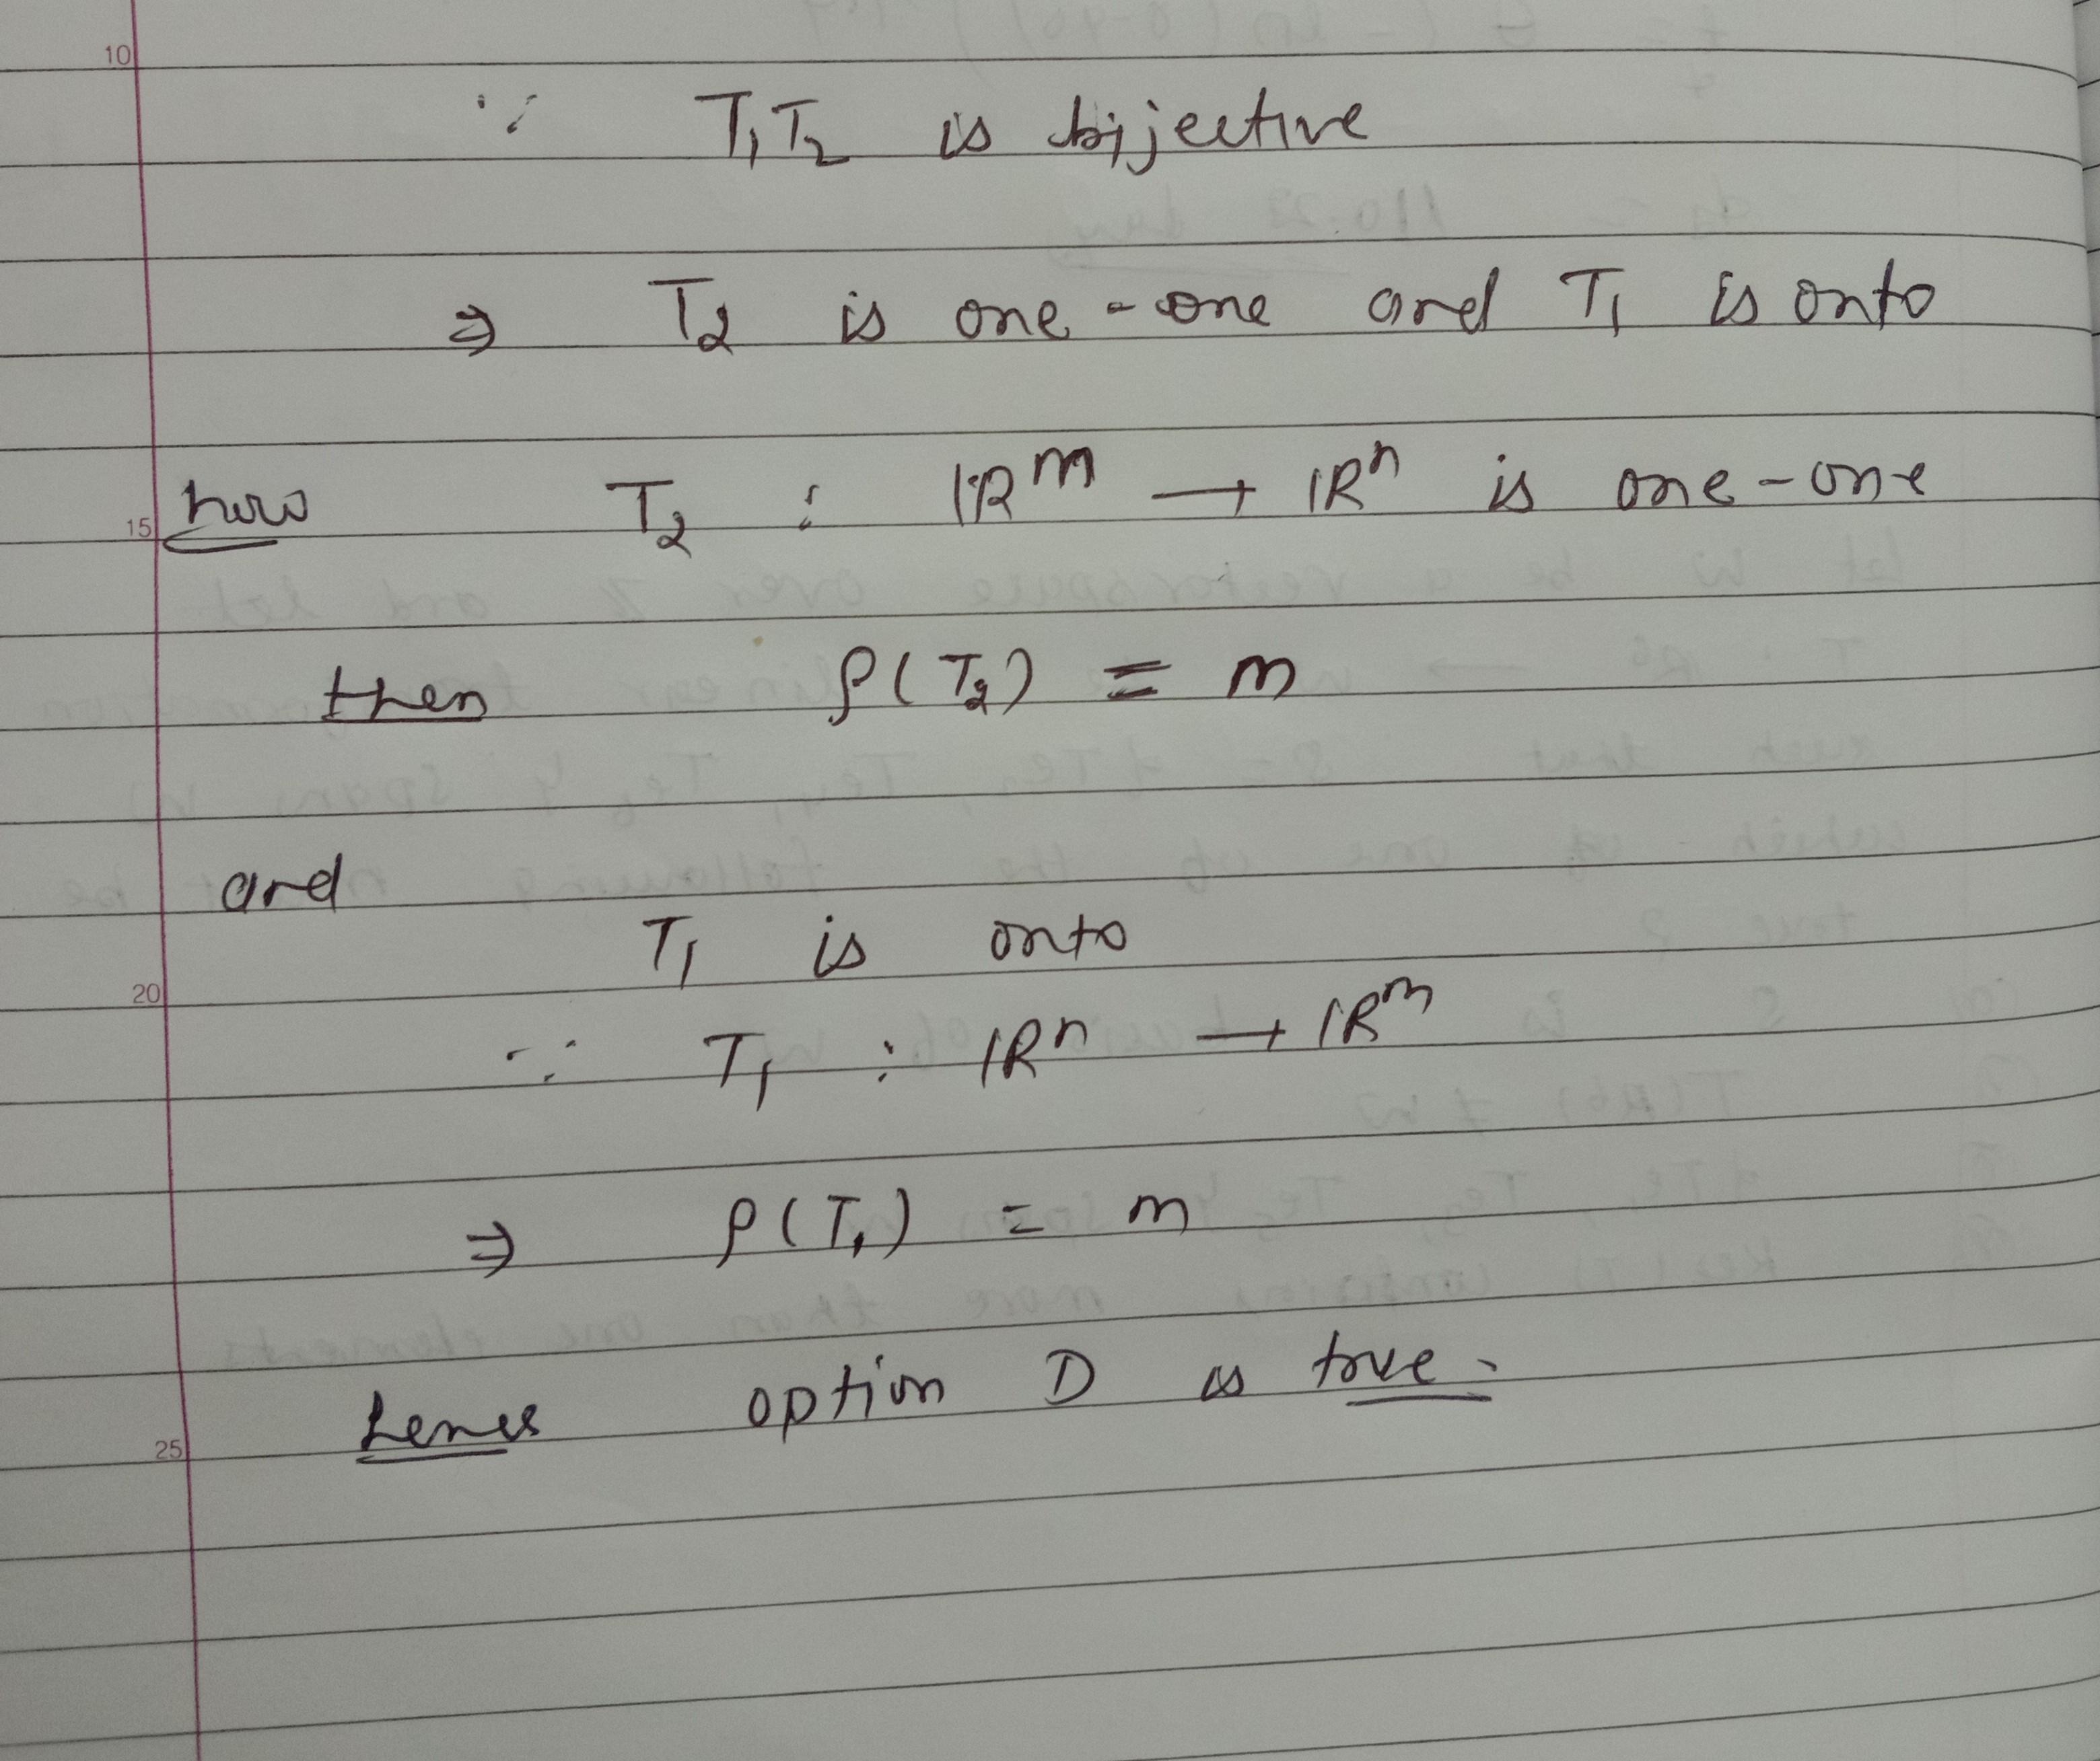 10
∵ T₁T₂ is bijective
⇒ T₂ is one-one and T₁ is onto
now T₂ : ℝᵐ → ℝⁿ is one-one
15
then ρ(T₂) = m
and
T₁ is onto
20
∵ T₁ : ℝⁿ → ℝᵐ
⇒ ρ(T₁) = m
Hence option D is true.
25